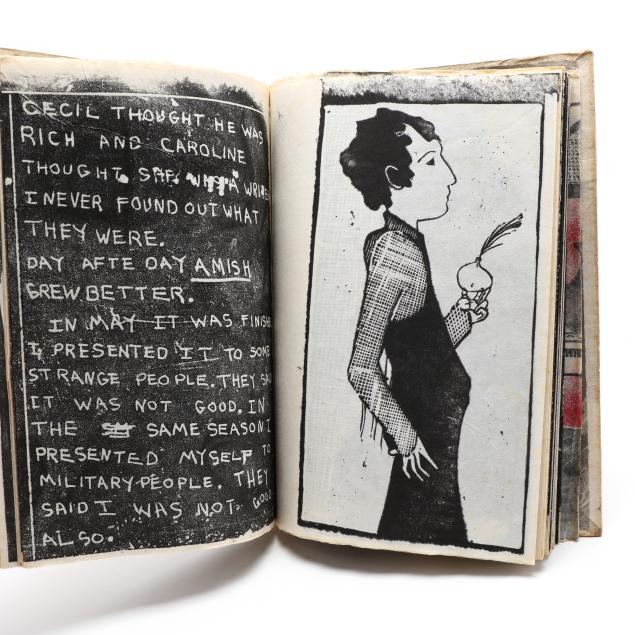 CECIL THOUGHT HE WAS
RICH AND CAROLINE
THOUGHT SHE WRITER
I NEVER FOUND OUT WHAT
THEY WERE.
DAY AFTE DAY AMISH
GREW BETTER.
IN MAY IT WAS FINISHE
I PRESENTED IT TO SOME
STRANGE PEOPLE. THEY SAI
IT WAS NOT GOOD. IN
THE SAME SEASON I
PRESENTED MYSELF TO
MILITARY PEOPLE. THEY
SAID I WAS NOT GOOD
ALSO.